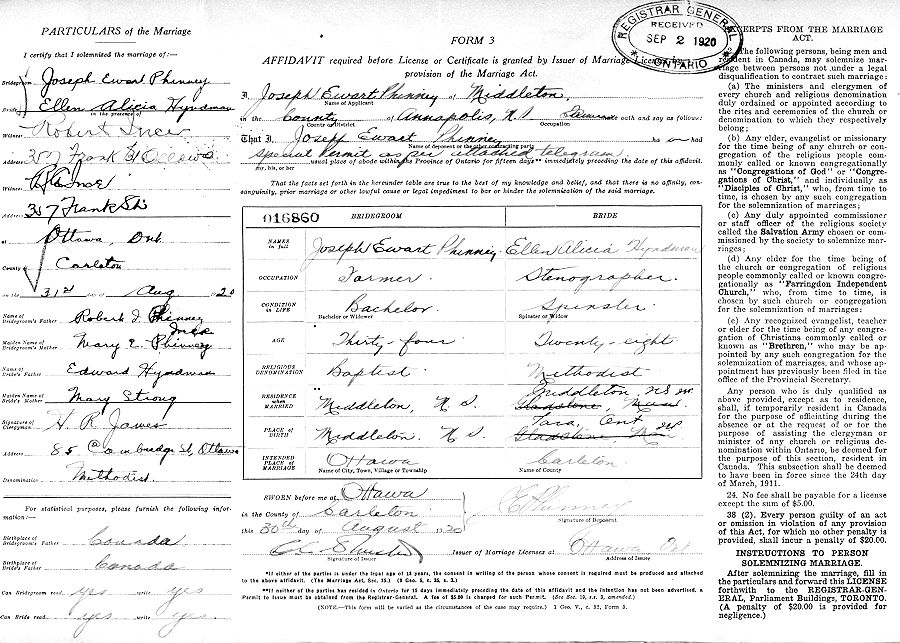 PARTICULARS of the Marriage
I certify that I solemnized the marriage of:—
Bridegroom Joseph Ewart Phinney
Bride Ellen Alicia Hyndman
in the presence of
Witness Robert
Address 357 Frank St Ottawa
Witness
Address 357 Frank St
at Ottawa, Ont.
County Carleton
on the 31st day of Aug 1920
Name of Bridegroom's Father Robert J. Phinney
Maiden Name of Bridegroom's Mother Mary E. Phinney
Name of Bride's Father Edward Hyndman
Maiden Name of Bride's Mother Mary Strong
Signature of Clergyman H. R. James
Address 85 Cambridge St, Ottawa
Denomination Methodist
For statistical purposes, please furnish the following information:—
Birthplace of Bridegroom's Father Canada
Birthplace of Bride's Father Canada
Can Bridegroom read yes write yes
Can Bride read yes write yes
REGISTRAR GENERAL
RECEIVED
SEP 2 1920
ONTARIO
FORM 3
AFFIDAVIT required before License or Certificate is granted by Issuer of Marriage Licenses by
provision of the Marriage Act.
I, Joseph Ewart Phinney of Middleton,
Name of Applicant
in the County of Annapolis, N.S. oath and say as follows:
County or District
Occupation
That I, Joseph Ewart Phinney had
Name of deponent or the other contracting party
special Permit as per attached telegram
my, his, or her usual place of abode within the Province of Ontario for fifteen days** immediately preceding the date of this affidavit.
That the facts set forth in the hereunder table are true to the best of my knowledge and belief, and that there is no affinity, consanguinity, prior marriage or other lawful cause or legal impediment to bar or hinder the solemnization of the said marriage.
016860 BRIDEGROOM BRIDE
NAMES in full Joseph Ewart Phinney Ellen Alicia Hyndman
OCCUPATION Farmer. Stenographer.
CONDITION IN LIFE Bachelor Spinster
Bachelor or Widower Spinster or Widow
AGE Thirty-four Twenty-eight
RELIGIOUS DENOMINATION Baptist Methodist
RESIDENCE when MARRIED Middleton, N.S. Middleton NS Gladstone, Man.
PLACE OF BIRTH Middleton. N.S. Tara, Ont Gladstone Man
INTENDED PLACE OF MARRIAGE Ottawa Carleton
Name of City, Town, Village or Township Name of County
SWORN before me at Ottawa
in the County of Carleton
this 30th day of August 1920
Phinney
Signature of Deponent
Signature of Issuer
Issuer of Marriage Licenses at Ottawa, Ont
Address of Issuer
*If either of the parties is under the legal age of 18 years, the consent in writing of the person whose consent is required must be produced and attached
to the above affidavit. (The Marriage Act, Sec. 15.)
**If neither of the parties has resided in Ontario for 15 days immediately preceding the date of this affidavit and the intention has not been advertised, a
Permit to Issue must be obtained from the Registrar-General. A fee of $5.00 is charged for such Permit. (See Sec. 19, s.s. 3, amended.)
(NOTE.—This form will be varied as the circumstances of the case may require.) 1 Geo. V., c. 32, Form 3.
EXCERPTS FROM THE MARRIAGE
ACT.
The following persons, being men and
resident in Canada, may solemnize mar-
riage between persons not under a legal
disqualification to contract such marriage:
(a) The ministers and clergymen of
every church and religious denomination
duly ordained or appointed according to
the rites and ceremonies of the church or
denomination to which they respectively
belong;
(b) Any elder, evangelist or missionary
for the time being of any church or con-
gregation of the religious people com-
monly called or known congregationally
as "Congregations of God" or "Congre-
gations of Christ," and individually as
"Disciples of Christ," who, from time to
time, is chosen by any such congregation
for the solemnization of marriages;
(c) Any duly appointed commissioner
or staff officer of the religious society
called the Salvation Army chosen or com-
missioned by the society to solemnize mar-
riages;
(d) Any elder for the time being of
the church or congregation of religious
people commonly called or known congre-
gationally as "Farringdon Independent
Church," who, from time to time, is
chosen by such church or congregation
for the solemnization of marriages;
(e) Any recognized evangelist, teacher
or elder for the time being of any congre-
gation of Christians commonly called or
known as "Brethren," who may be ap-
pointed by any such congregation for the
solemnization of marriages, and whose ap-
pointment has previously been filed in the
office of the Provincial Secretary.
Any person who is duly qualified as
above provided, except as to residence,
shall, if temporarily resident in Canada
for the purpose of officiating during the
absence or at the request of or for the
purpose of assisting the clergyman or
minister of any church or religious de-
nomination within Ontario, be deemed for
the purpose of this section, resident in
Canada. This subsection shall be deemed
to have been in force since the 24th day
of March, 1911.
24. No fee shall be payable for a license
except the sum of $5.00.
38 (2). Every person guilty of an act
or omission in violation of any provision
of this Act, for which no other penalty is
provided, shall incur a penalty of $20.00.
INSTRUCTIONS TO PERSON
SOLEMNIZING MARRIAGE.
After solemnizing the marriage, fill in
the particulars and forward this LICENSE
forthwith to the REGISTRAR-GEN-
ERAL, Parliament Buildings, TORONTO.
(A penalty of $20.00 is provided for
negligence.)